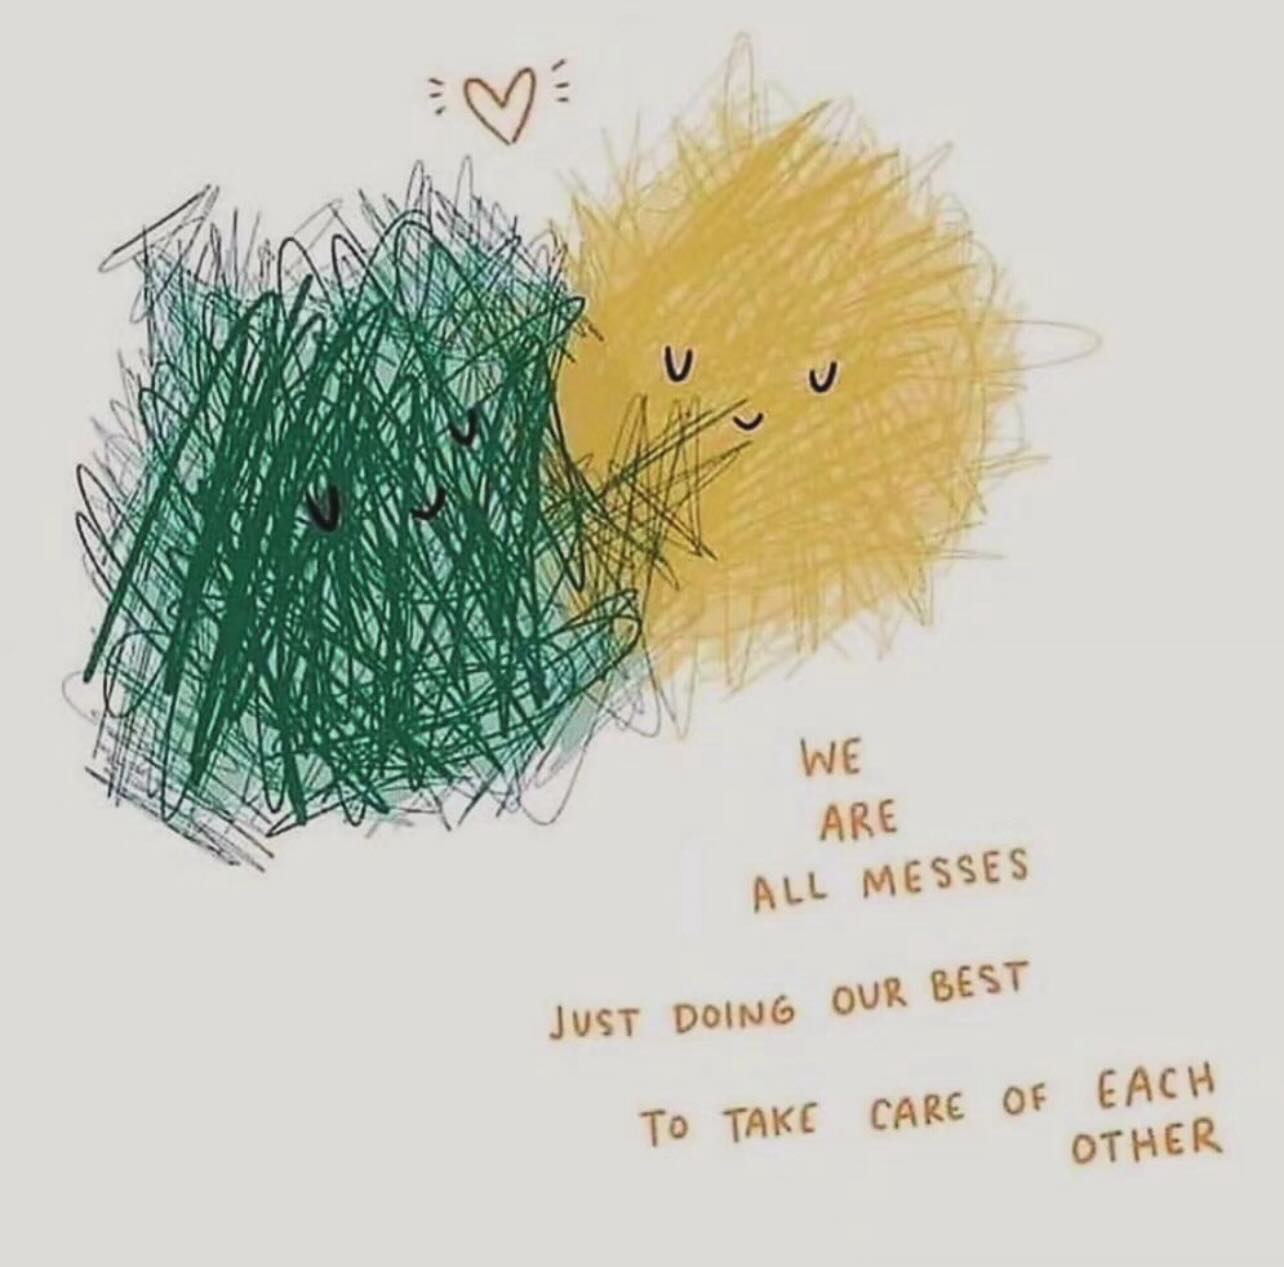 WE
ARE
ALL MESSES
JUST DOING OUR BEST
TO TAKE CARE OF EACH
OTHER